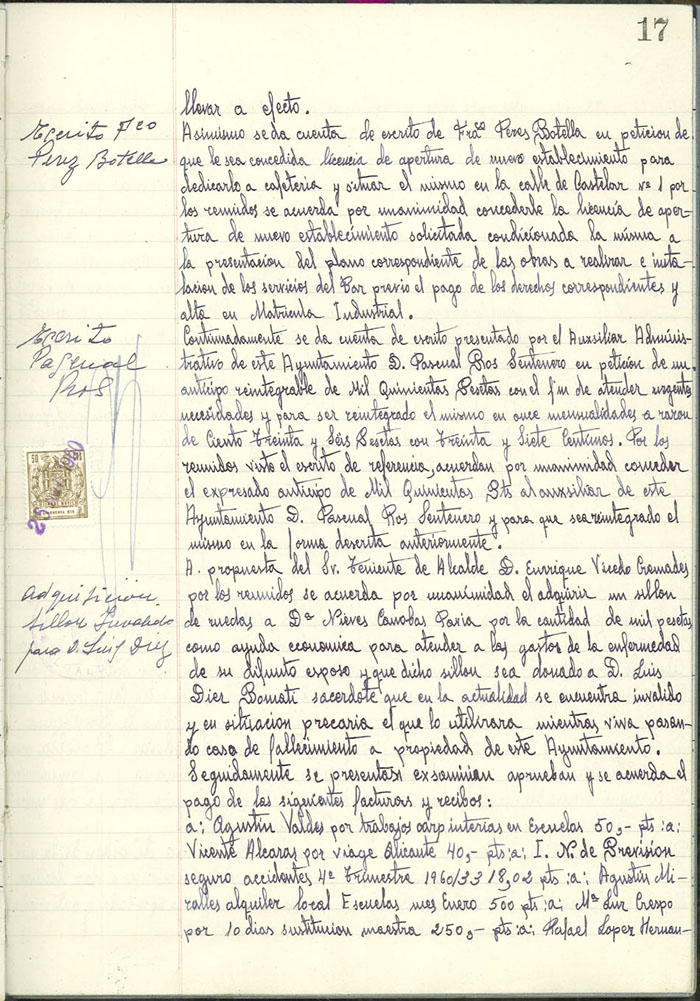 17
llevar a efecto.
Escrito Fco
Perez Botella
Asimismo se da cuenta de escrito de Frco Peres Botella en peticion de
que le sea concedida licencia de apertura de nuevo establecimiento para
dedicarlo a cafeteria y situar el mismo en la calle de Castelar nº 1 por
los reunidos se acuerda por unanimidad concederle la licencia de aper-
tura de nuevo establecimiento solicitada condicionada la misma a
la presentacion del plano correspondiente de las obras a realizar e insta-
lacion de los servicios del Bar previo el pago de los derechos correspondientes y
alta en Matricula Industrial.
Escrito
Pascual
Ros
Continuadamente se da cuenta de escrito presentado por el Auxsiliar Adminis-
trativo de este Ayuntamiento D. Pascual Ros Sentenero en peticion de un
anticipo reintegrable de Mil Quinientas Pesetas con el fin de atender urgentes
necesidades y para ser reintegrado el mismo en once mensualidades a razon
de Ciento Treinta y Seis Pesetas con Treinta y Siete Centimos. Por los
reunidos visto el escrito de referencia, acuerdan por unanimidad conceder
el expresado anticipo de Mil Quinientas Pts al auxsiliar de este
Ayuntamiento D. Pascual Ros Sentenero y para que sea reintegrado el
mismo en la forma descrita anteriormente.
Adquisicion
sillon Invalido
para D. Luis Diez
A. propuesta del Sr. Teniente de Alcalde D. Enrrique Vicedo Cremades
por los reunidos se acuerda por unanimidad el adquirir un sillon
de ruedas a Dª Nieves Canobas Pavia por la cantidad de mil pesetas
como ayuda economica para atender a los gastos de la enfermedad
de su difunto esposo y que dicho sillon sea donado a D. Luis
Dier Bomati sacerdote que en la actualidad se encuentra invalido
y en situacion precaria el que lo utilizara mientras viva pasan-
do caso de fallecimiento a propiedad de este Ayuntamiento.
Seguidamente se presentasi exsaminan aprueban y se acuerda el
pago de las siguientes facturas y recibos:
a; Agustin Valdes por trabajos carpinterias en Escuelas 50,- pts :a:
Vicente Alcaras por viage Alicante 40,- pts :a: I. N. de Prevision
seguro accidentes 4º Trimestre 1960/33 18,02 pts :a; Agustin Mi-
ralles alquiler local Escuelas mes Enero 500 pts :a; Mª Luz Crespo
por 10 dias sustitucion maestra 250,- pts :a; Rafael Lopez Hernan-